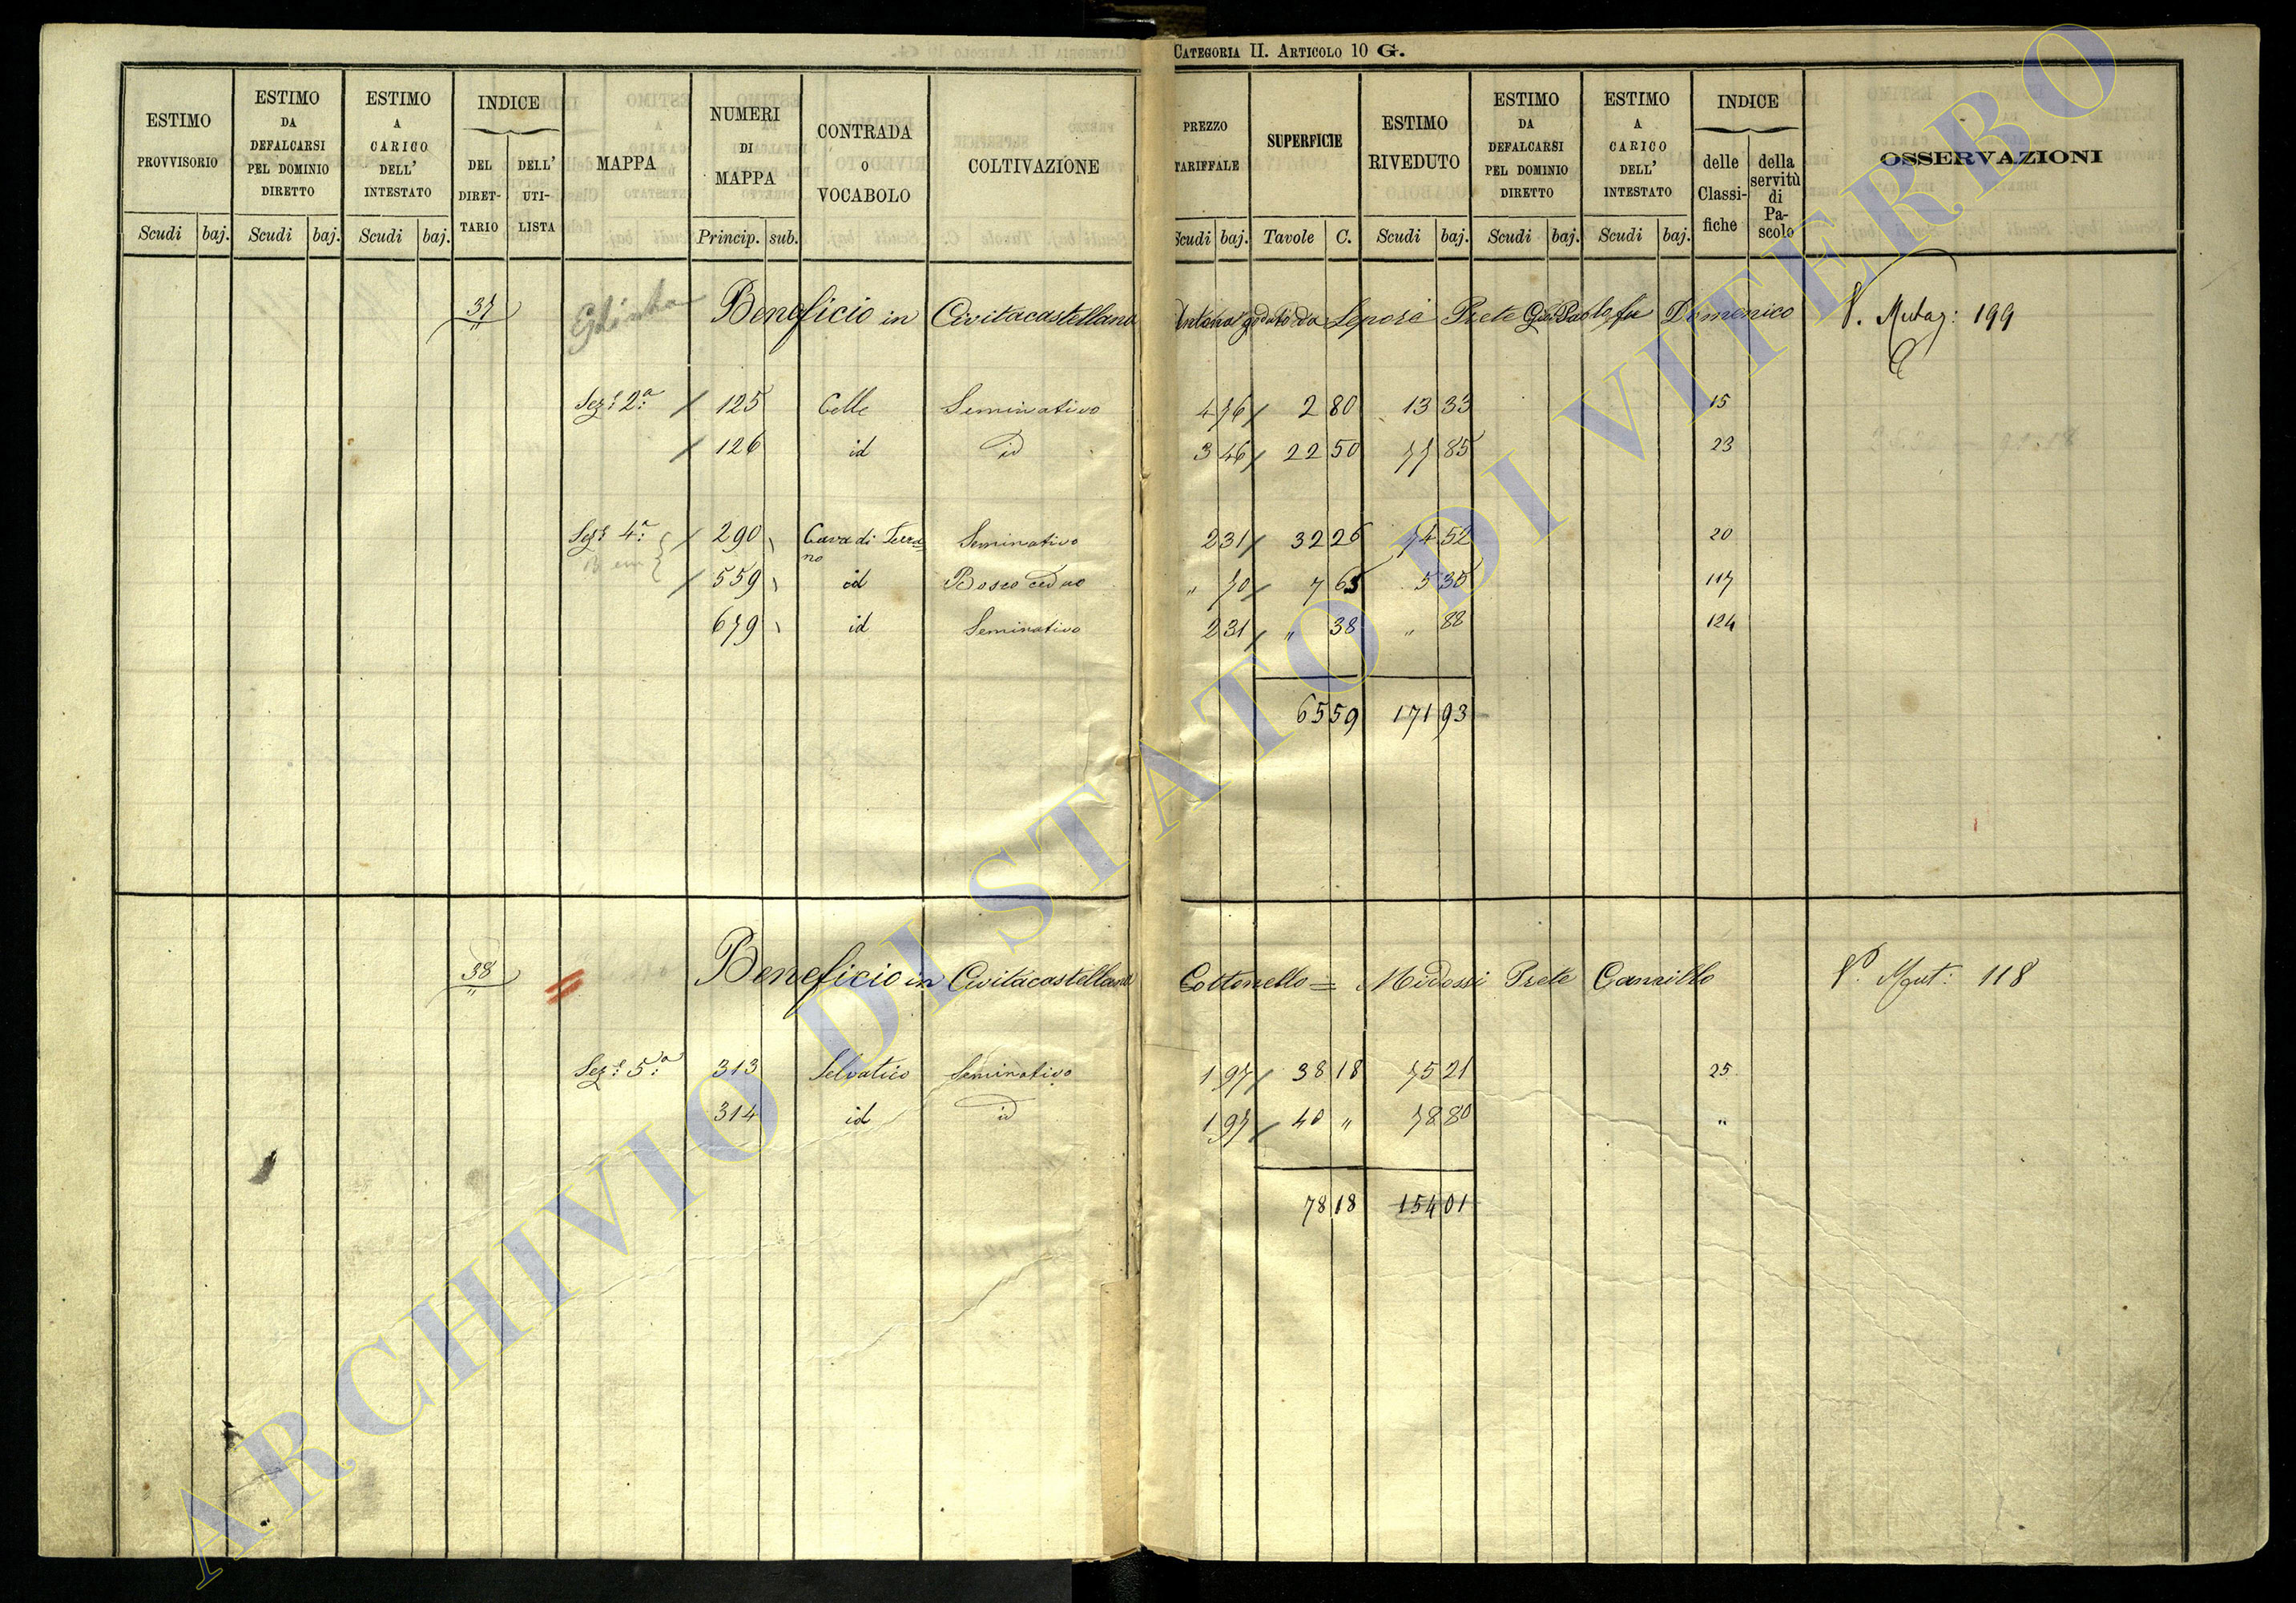 CATEGORIA II. ARTICOLO 10 G.
ESTIMO PROVVISORIO Scudi baj.
ESTIMO DA DEFALCARSI PEL DOMINIO DIRETTO Scudi baj.
ESTIMO A CARICO DELL' INTESTATO Scudi baj.
INDICE DEL DIRET-TARIO DELL' UTI-LISTA
MAPPA
NUMERI DI MAPPA Princip. sub.
CONTRADA O VOCABOLO
COLTIVAZIONE
PREZZO TARIFFALE Scudi baj.
SUPERFICIE Tavole C.
ESTIMO RIVEDUTO Scudi baj.
ESTIMO DA DEFALCARSI PEL DOMINIO DIRETTO Scudi baj.
ESTIMO A CARICO DELL' INTESTATO Scudi baj.
INDICE delle Classi-fiche della servitù di Pa-scolo
OSSERVAZIONI
37 Beneficio in Civitacastellana Antona goduto da Leporé Prete Gio: Paolo fu Domenico V. Mutaz: 199
Sez.e 2.a 125 Celle Seminativo 4 76 2 80 13 33 15
126 id id 3 46 22 50 77 85 23
Sez.e 4.a 290 Cava di Terra Seminativo 2 31 32 26 74 52 20
no
559 id Bosco ceduo " 70 7 65 5 35 117
679 id Seminativo 2 31 " 38 " 88 124
65 59 171 93
38 Beneficio in Civitacastellana Cottonello = Midossi Prete Camillo V. Mut: 118
Sez.e 5.a 313 Selvatico Seminativo 1 97 38 18 75 21 25
314 id id 1 97 40 " 78 80 "
78 18 154 01
ARCHIVIO DI STATO DI VITERBO